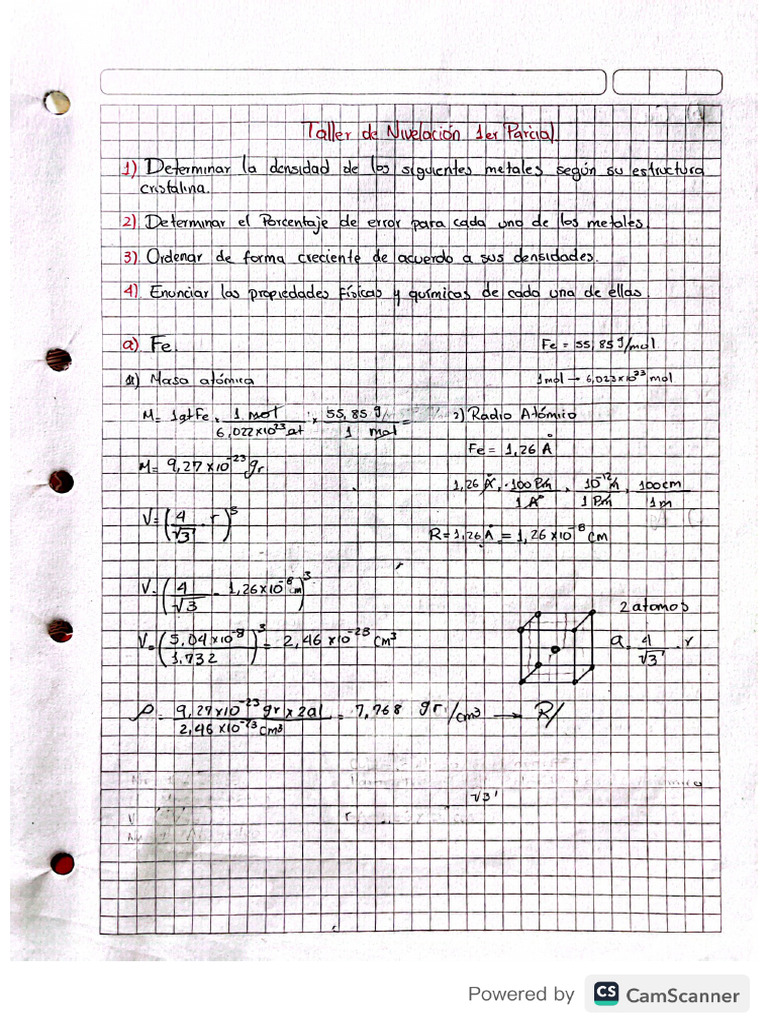 Taller de Nivelación 1er Parcial.
1) Determinar la densidad de los siguientes metales según su estructura
cristalina.
2) Determinar el Porcentaje de error para cada uno de los metales.
3) Ordenar de forma creciente de acuerdo a sus densidades.
4) Enunciar las propiedades Físicas y químicas de cada una de ellas.
a) Fe.
Fe = 55,85 g/mol
1) Masa atómica
1mol → 6,023x10²³ mol
M= 1atFe . 1 mol / 6,022x10²³at x 55,85 g / 1 mol =
2) Radio Atómico
Fe = 1,26 Å
M= 9,27x10⁻²³gr
1,26 Å . 100Pm / 1 A° . 10⁻¹²m / 1 Pm . 100cm / 1m
V= (4/√3 . r)³
R=1,26 Å = 1,26x10⁻⁸ cm
V= (4/√3 . 1,26x10⁻⁸cm)³
2 atomos
a= 4/√3 . r
V= (5,04x10⁻⁸ / 1,732)³ = 2,46 x10⁻²³ cm³
ρ = 9,27x10⁻²³gr x 2at / 2,46 x10⁻²³cm³ = 7,768 gr/cm³ → R/
√3
Powered by CS CamScanner